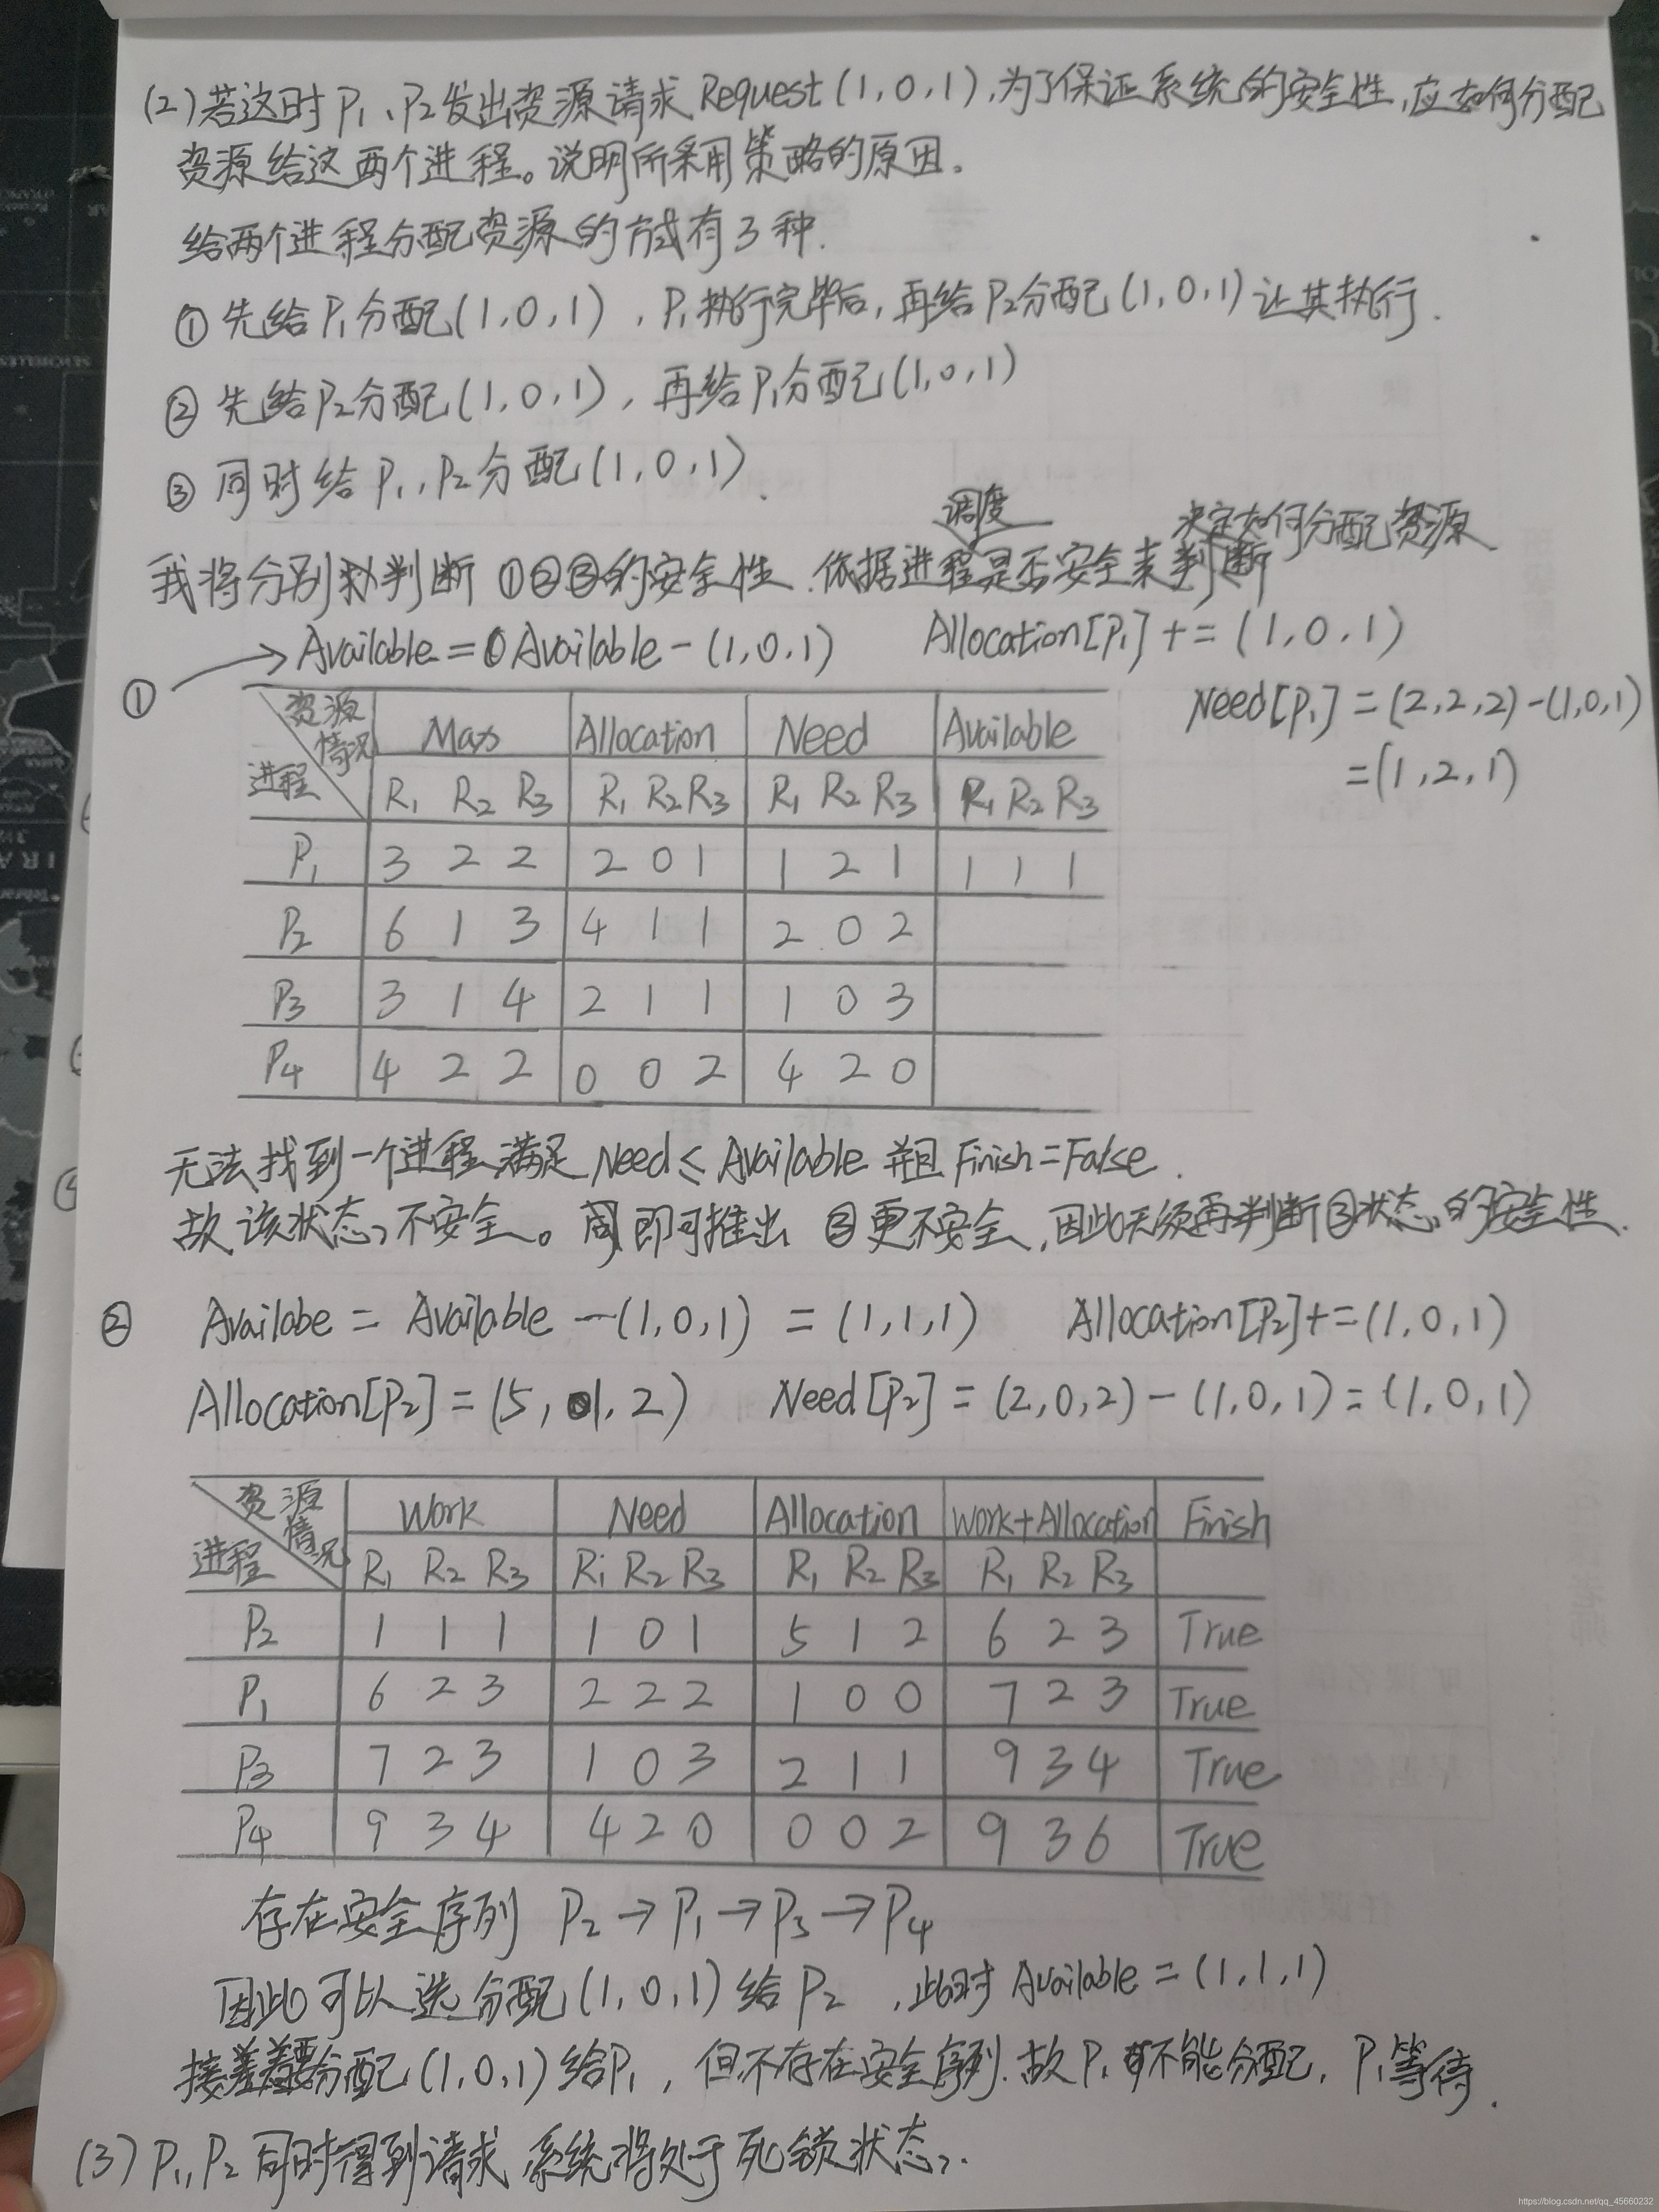 (2)若这时P₁、P₂发出资源请求Request(1,0,1),为了保证系统的安全性,应如何分配
资源给这两个进程。说明所采用策略的原因.
给两个进程分配资源的方式有3种.
① 先给P₁分配(1,0,1),P₁执行完毕后,再给P₂分配(1,0,1)让其执行.
② 先给P₂分配(1,0,1),再给P₁分配(1,0,1)
③ 同时给P₁、P₂分配(1,0,1).
调度 决定如何分配资源
我将分别判断①②③的安全性.依据进程是否安全来判断
① → Available = Available - (1,0,1) Allocation[P₁] += (1,0,1)
Need[P₁] = (2,2,2) - (1,0,1)
= (1,2,1)
资源情况 进程 Max Allocation Need Available
R₁ R₂ R₃ R₁ R₂ R₃ R₁ R₂ R₃ R₁ R₂ R₃
P₁ 3 2 2 2 0 1 1 2 1 1 1 1
P₂ 6 1 3 4 1 1 2 0 2
P₃ 3 1 4 2 1 1 1 0 3
P₄ 4 2 2 0 0 2 4 2 0
无法找到一个进程满足Need ≤ Available 并且 Finish = False.
故该状态不安全。即可推出 ③更不安全,因此无须再判断③状态的安全性.
② Availabe = Available - (1,0,1) = (1,1,1) Allocation[P₂] += (1,0,1)
Allocation[P₂] = (5,1,2) Need[P₂] = (2,0,2) - (1,0,1) = (1,0,1)
资源情况 进程 Work Need Allocation Work+Allocation Finish
R₁ R₂ R₃ R₁ R₂ R₃ R₁ R₂ R₃ R₁ R₂ R₃
P₂ 1 1 1 1 0 1 5 1 2 6 2 3 True
P₁ 6 2 3 2 2 2 1 0 0 7 2 3 True
P₃ 7 2 3 1 0 3 2 1 1 9 3 4 True
P₄ 9 3 4 4 2 0 0 0 2 9 3 6 True
存在安全序列 P₂→P₁→P₃→P₄
因此可以先分配(1,0,1)给P₂,此时Available = (1,1,1)
接着要分配(1,0,1)给P₁,但不存在安全序列.故P₁不能分配,P₁等待.
(3) P₁,P₂同时得到请求,系统将处于死锁状态.
https://blog.csdn.net/qq_45660232